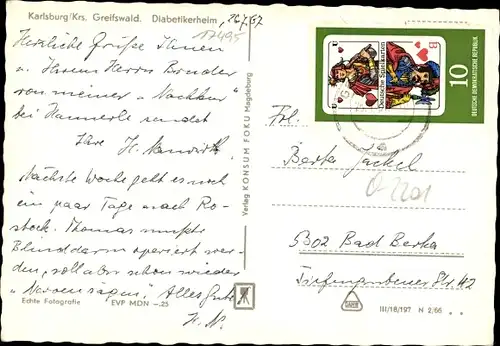 Karlsburg/Krs. Greifswald. Diabetikerheim
26.7.67
17495
Herzliche Grüße Ihnen
u. Ihrem Herrn Bruder
von meiner "Nachkur"
bei sendet
Ihre H.
Nächste Woche geht es noch
ein paar Tage nach Ro-
stock. Thomas mußte
Blinddarm operiert wer-
den, soll aber schon wieder
Alles Gute
H. N.
Echte Fotografie EVP MDN -.25
Verlag KONSUM FOKU Magdeburg
Deutsche Spielkarten
10
DEUTSCHE DEMOKRATISCHE REPUBLIK
Frl.
Berta Jäckel
5302 Bad Berka
Tiefengrubener Str. 42
III/18/197 N 2/66